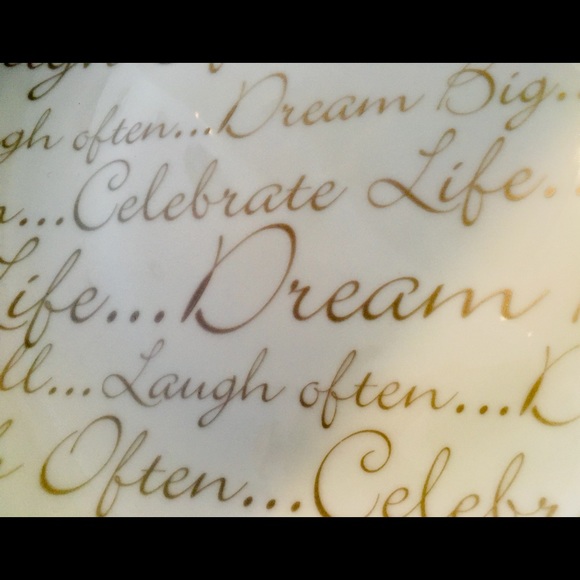 gh often...Dream Big..
...Celebrate Life.
Life...Dream
ll...Laugh often...D
Often...Celebr